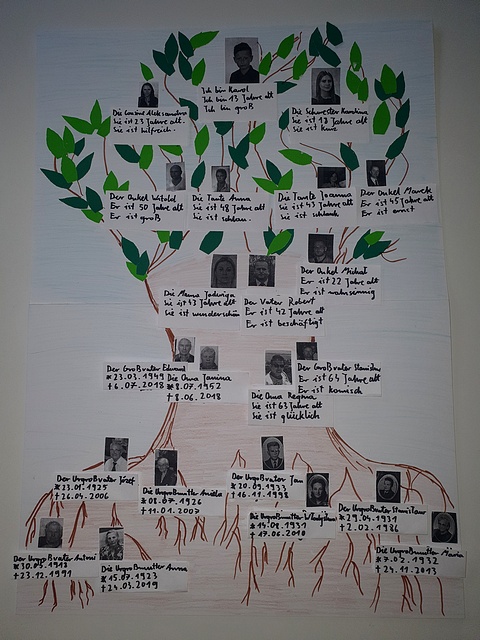 Ich bin Karol
Ich bin 13 Jahre alt
Ich bin groß
Die Cousine Aleksandra
Sie ist 23 Jahre alt.
Sie ist hilfreich.
Die Schwester Karolina
Sie ist 18 Jahre alt
Sie ist kurz
Der Onkel Witold
Er ist 50 Jahre alt
Er ist groß
Die Tante Anna
Sie ist 48 Jahre alt
Sie ist schlau.
Die Tante Joanna
Sie ist 43 Jahre alt
Sie ist schlank
Der Onkel Marek
Er ist 45 Jahre alt
Er ist ernst
Die Mama Jadwiga
Sie ist 43 Jahre alt
Sie ist wunderschön
Der Vater Robert
Er ist 42 Jahre alt
Er ist beschäftigt
Der Onkel Michał
Er ist 22 Jahre alt
Er ist wahnsinnig
Der Großvater Edward
* 23.03.1949
† 6.07.2018
Die Oma Janina
* 8.07.1952
† 8.06.2018
Die Oma Regina
Sie ist 63 Jahre alt
Sie ist glücklich
Der Großvater Stanisław
Er ist 64 Jahre alt
Er ist komisch
Der Urgroßvater Józef
* 23.01.1925
† 26.04.2006
Die Urgroßmutter Aniela
* 08.07.1926
† 11.01.2007
Der Urgroßvater Jan
* 20.09.1933
† 16.11.1998
Die Urgroßmutter Władysława
* 15.08.1931
† 17.06.2010
Der Urgroßvater Stanisław
* 29.04.1931
† 2.02.1986
Die Urgroßmutter Maria
* 7.02.1932
† 24.11.2013
Der Urgroßvater Antoni
* 30.05.1918
† 23.12.1991
Die Urgroßmutter Anna
* 15.07.1923
† 24.03.2019